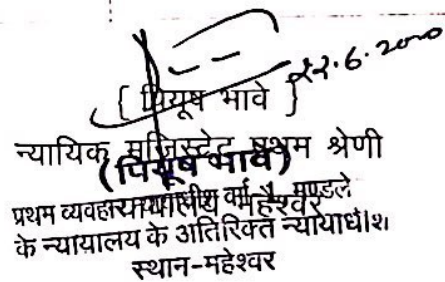 22.6.2000
{ पियूष भावे }
न्यायिक मजिस्ट्रेट प्रथम श्रेणी
(पियूष भावे)
प्रथम व्यवहार न्यायाधीश वर्ग-1 मण्डले
के न्यायालय के अतिरिक्त न्यायाधीश
स्थान-महेश्वर